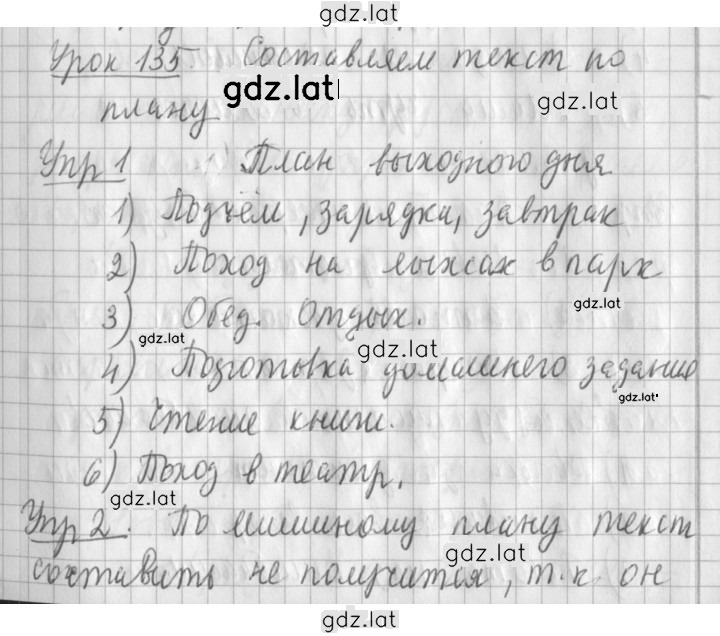 gdz.lat
Урок 135. Составляем текст по
gdz.lat
gdz.lat
плану
Упр 1 План выходного дня
1) Подъём, зарядка, завтрак
2) Поход на лыжах в парк
gdz.lat
3) Обед. Отдых.
gdz.lat
gdz.lat
4) Подготовка домашнего задание
gdz.lat
5) Чтение книги.
6) Поход в театр.
gdz.lat
Упр 2. По мишиному плану текст
gdz.lat
составить не получится, т.к он
gdz.lat